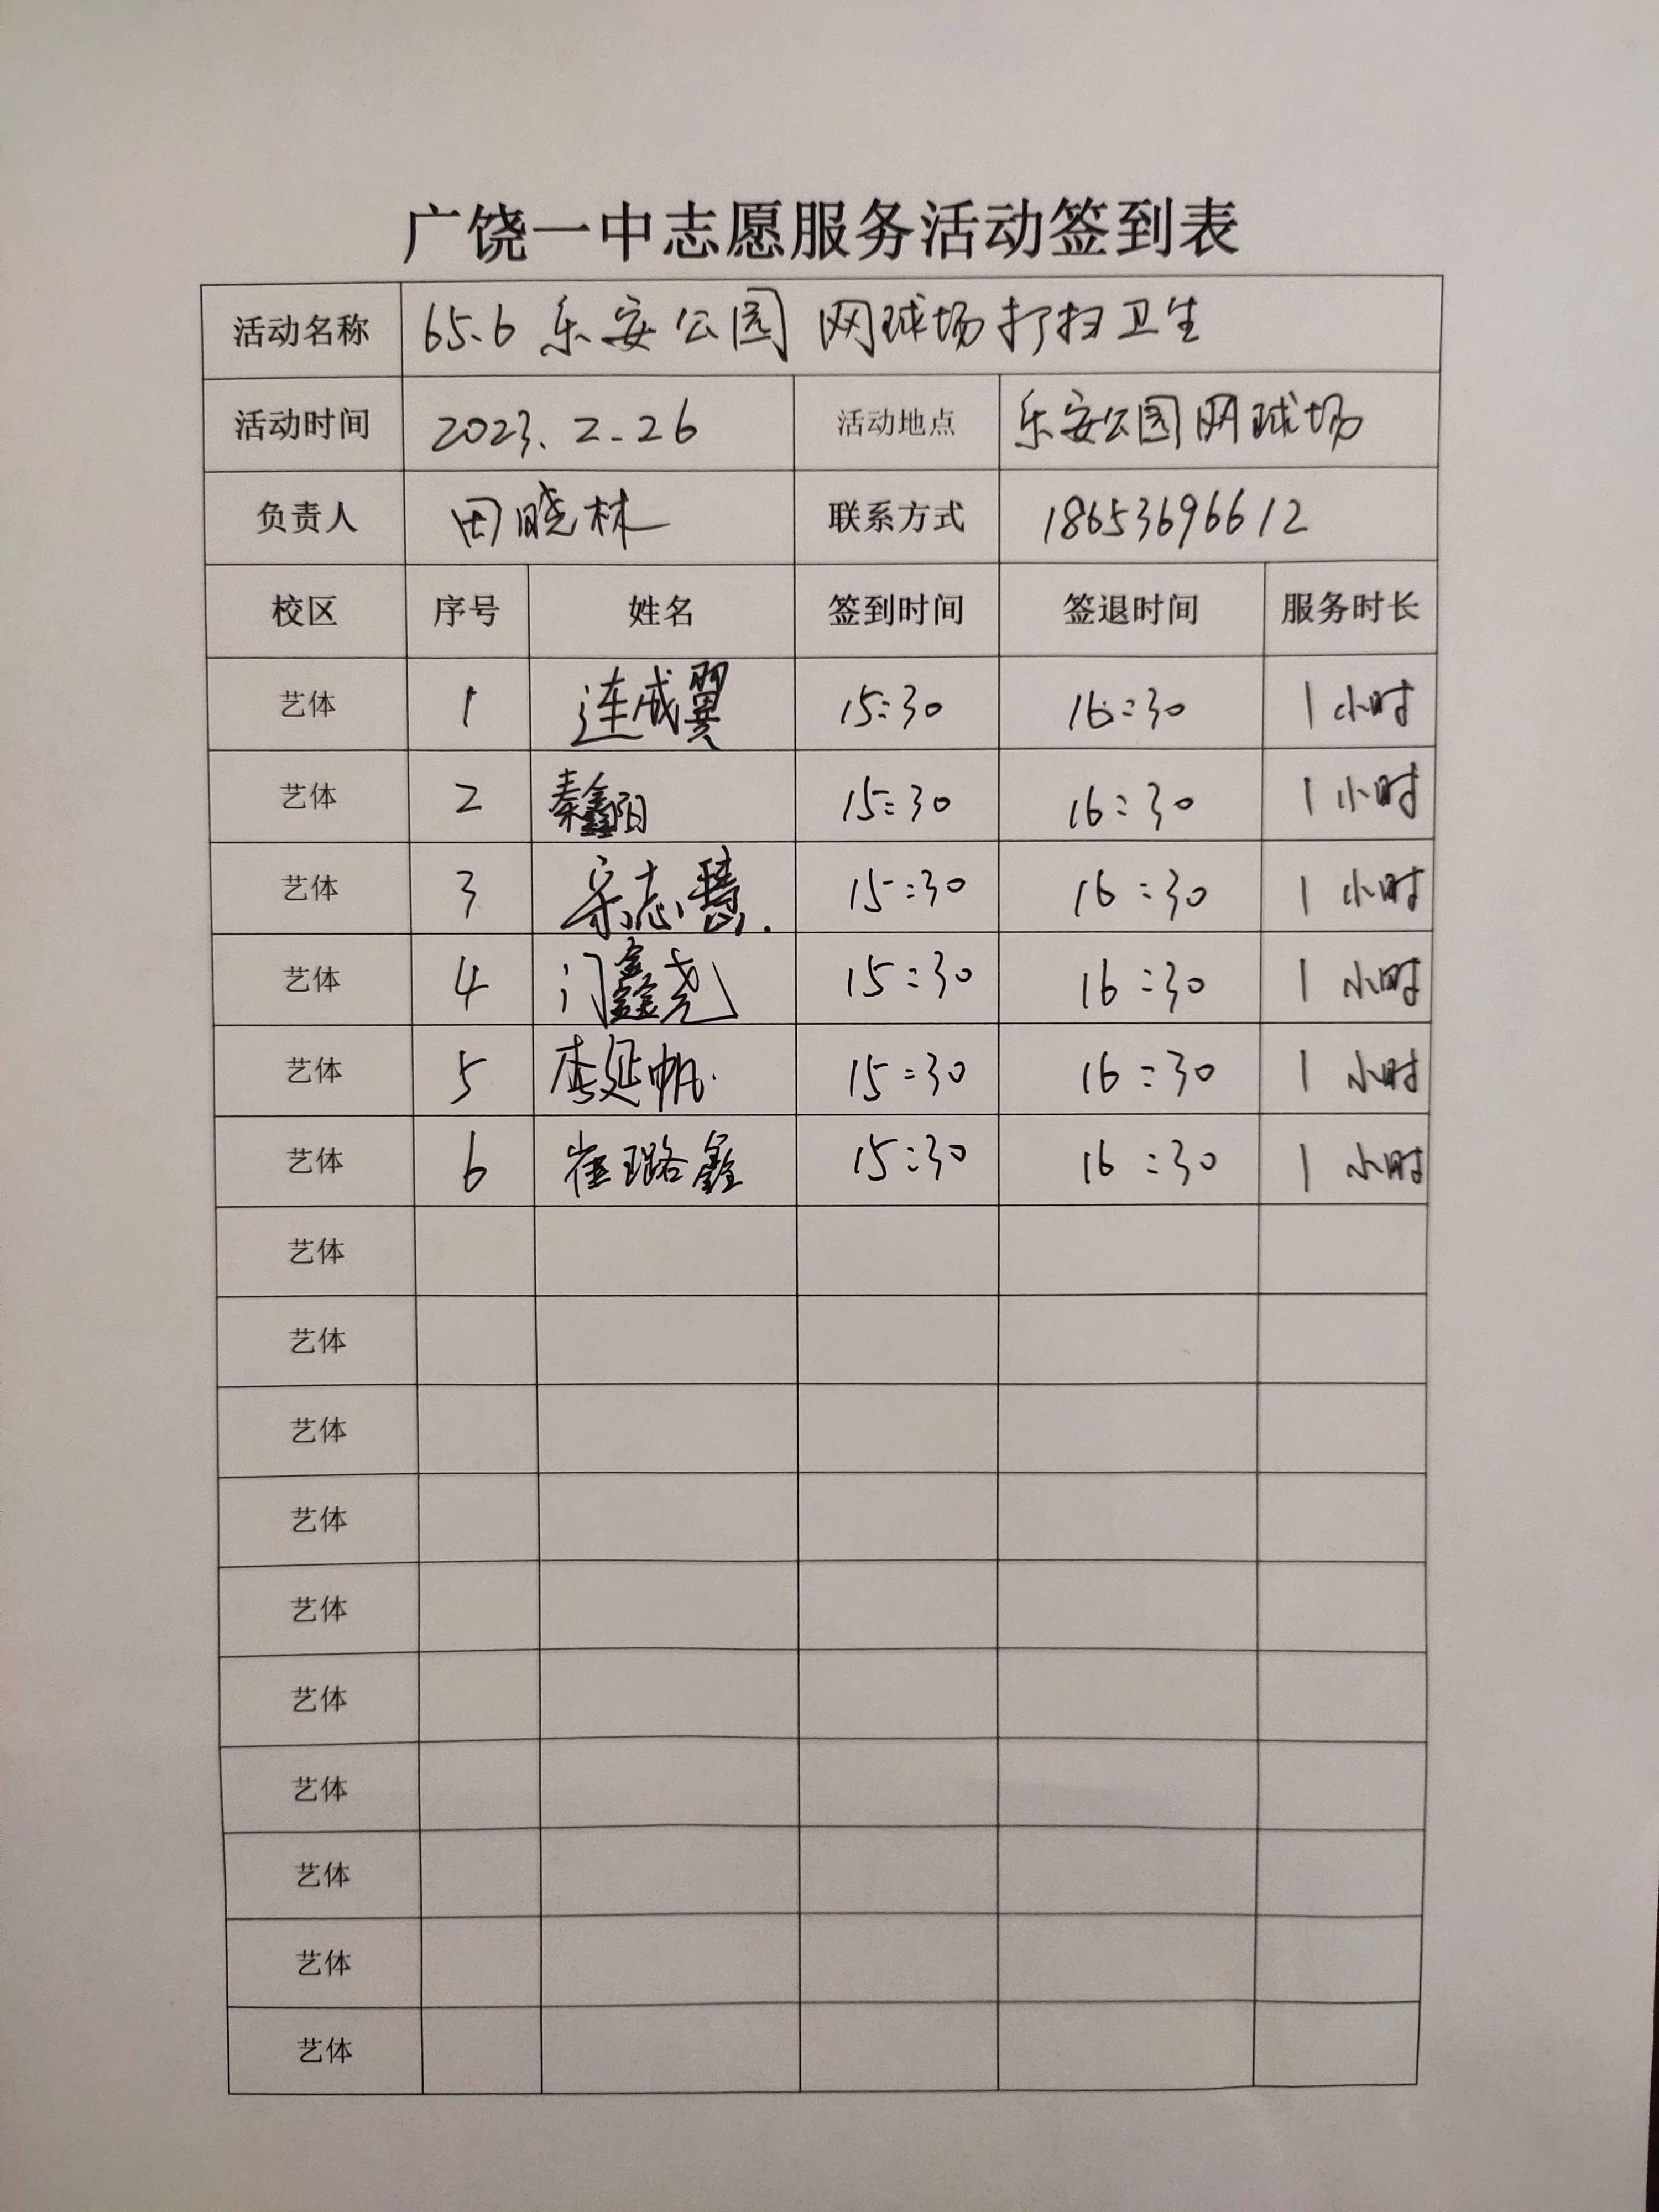 广饶一中志愿服务活动签到表
活动名称 65.6 乐安公园 网球场打扫卫生
活动时间 2023.2.26 活动地点 乐安公园网球场
负责人 田晓林 联系方式 18653696612
校区 序号 姓名 签到时间 签退时间 服务时长
艺体 1 连成翼 15:30 16:30 1小时
艺体 2 秦鑫阳 15:30 16:30 1小时
艺体 3 宋志慧 15:30 16:30 1小时
艺体 4 门鑫尧 15:30 16:30 1小时
艺体 5 李延帆 15:30 16:30 1小时
艺体 6 崔璐鑫 15:30 16:30 1小时
艺体
艺体
艺体
艺体
艺体
艺体
艺体
艺体
艺体
艺体